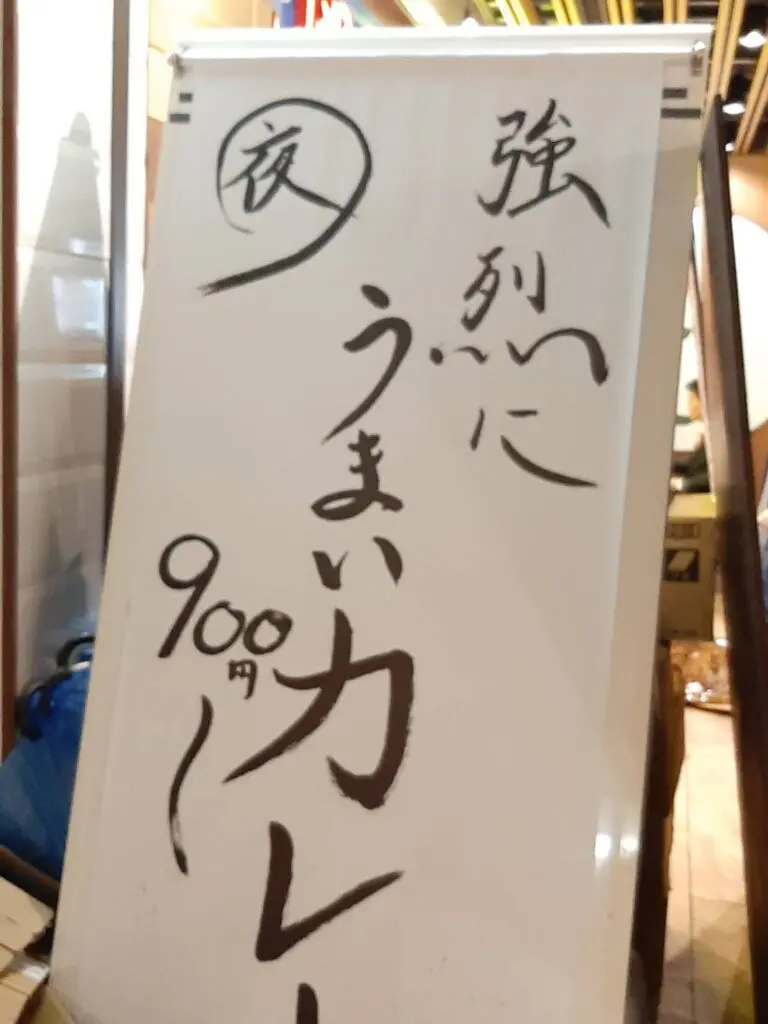 強烈に
うまいカレー
夜
900円〜